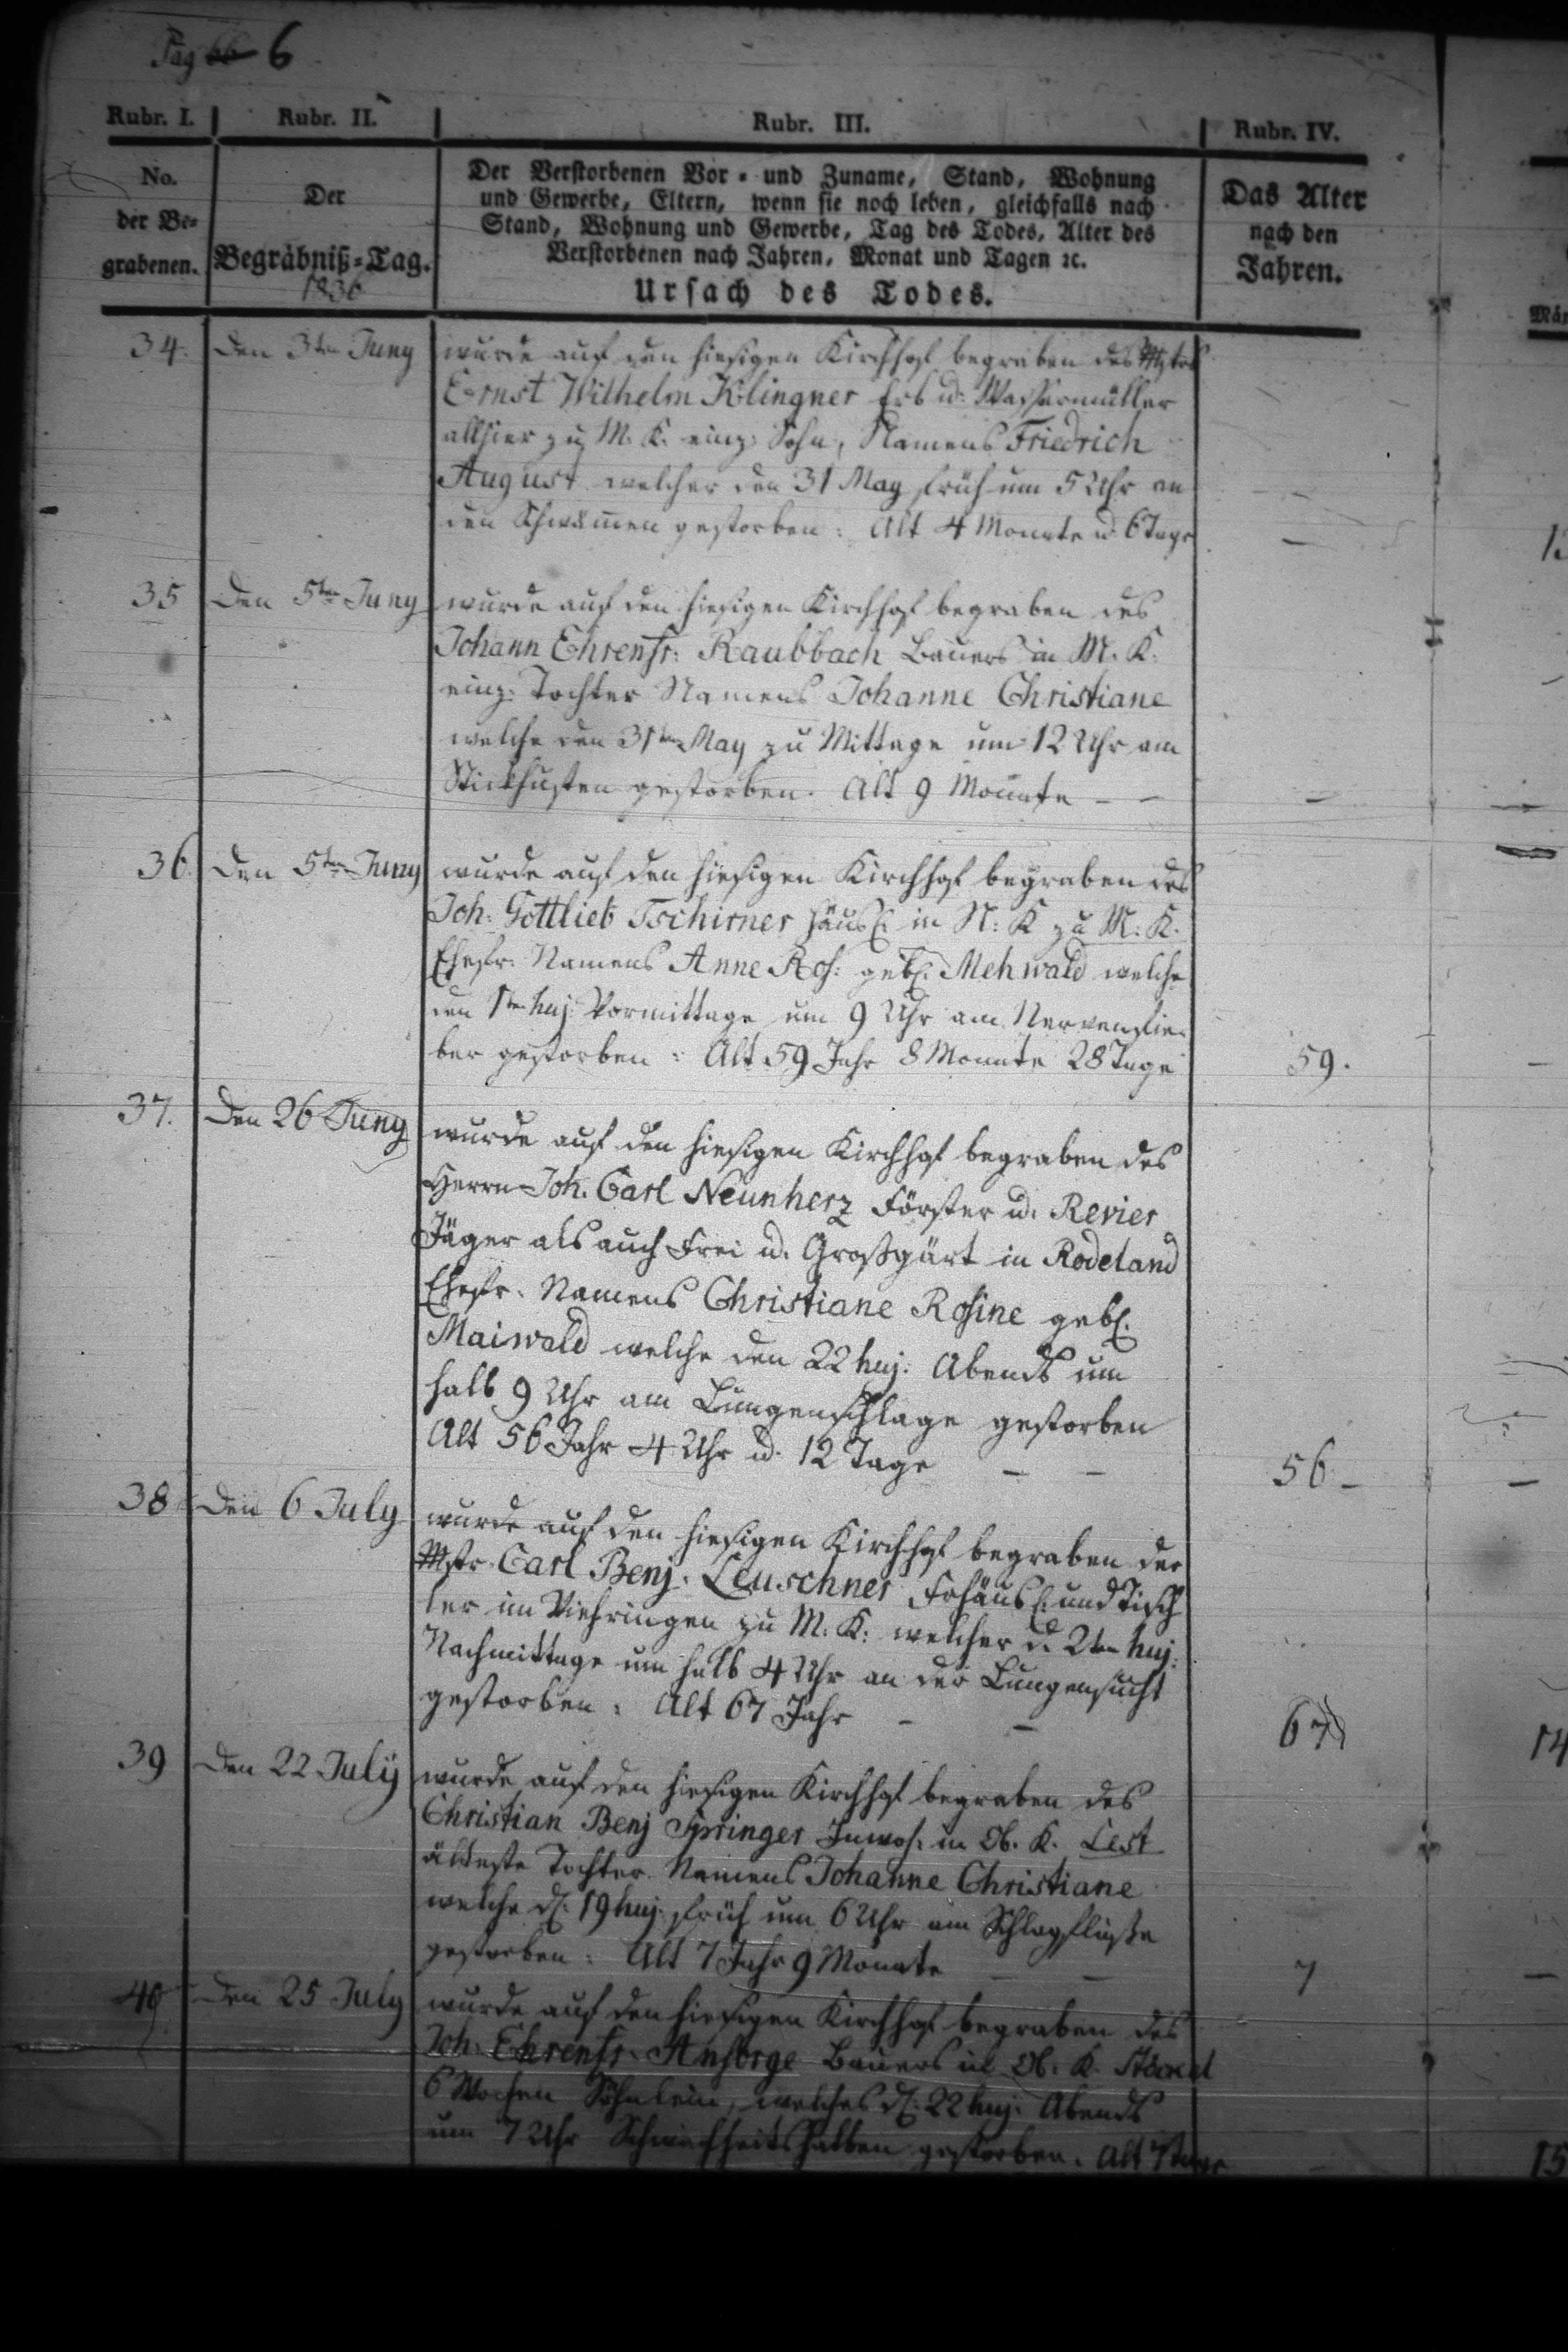 Pag 66 6
Rubr. I. Rubr. II. Rubr. III. Rubr. IV.
No.
der Be-
grabenen.
Der
Begräbniß-Tag.
1836
Der Verstorbenen Vor- und Zuname, Stand, Wohnung
und Gewerbe, Eltern, wenn sie noch leben, gleichfalls nach
Stand, Wohnung und Gewerbe, Tag des Todes, Alter des
Verstorbenen nach Jahren, Monat und Tagen ꝛc.
Ursach des Todes.
Das Alter
nach den
Jahren.
34. Den 3ten Juny wurde auf den hiesigen Kirchhof begraben des Mstrs
Ernst Wilhelm Klingner Erb u. Wassermüller
allhier zu M. K. einz. Sohn, Namens Friedrich
August welcher den 31 May früh um 5 Uhr an
den Schwämmen gestorben: Alt 4 Monate u. 6 Tage –
35 Den 5ten Juny wurde auf den hiesigen Kirchhof begraben des
Johann Ehrenfr: Raubbach Bauers in M. K.
einz. Tochter Namens Johanne Christiane
welche den 31ten May zu Mittage um 12 Uhr am
Stickhusten gestorben. Alt 9 Monate – – –
36. Den 5ten Juny wurde auf den hiesigen Kirchhof begraben des
Joh: Gottlieb Tschirner Häusl: in N: K zu M: K.
Ehefr. Namens Anne Ros: geb. Mehwald welche
den 1ten huj: Vormittage um 9 Uhr am Nervenfie-
ber gestorben: Alt 59 Jahr 8 Monate 28 Tage 59.
37. Den 26 Juny wurde auf den hiesigen Kirchhof begraben des
Herrn Joh. Carl Neunherz Förster u. Revier
Jäger als auch Frei u. Großgärt in Rodeland
Ehefr. Namens Christiane Rosine geb.
Maiwald welche den 22 huj. Abends um
halb 9 Uhr am Lungenschlage gestorben
Alt 56 Jahr 4 Uhr u. 12 Tage – – 56 –
38 Den 6 July wurde auf den hiesigen Kirchhof begraben der
Mstr. Carl Benj. Leuschner Frhäusl: und Tisch
ler im Viehringen zu M. K: welcher d. 2ten huj:
Nachmittage um halb 4 Uhr an der Lungensucht
gestorben: Alt 67 Jahr – – 67
39 Den 22 July wurde auf den hiesigen Kirchhof begraben des
Christian Benj Springer Inwoh. in Ob. K. Lest
älteste Tochter Namens Johanne Christiane
welche d. 19 huj. früh um 6 Uhr am Schlagfluße
gestorben: Alt 7 Jahr 9 Monate – – 7
40 Den 25 July wurde auf den hiesigen Kirchhof begraben des
Joh: Ehrenfr. Ansorge Bauers in Ob: K.
6 Wochen Söhnlein, welches d. 22 huj. Abends
um 7 Uhr Schwachheitshalben gestorben. Alt